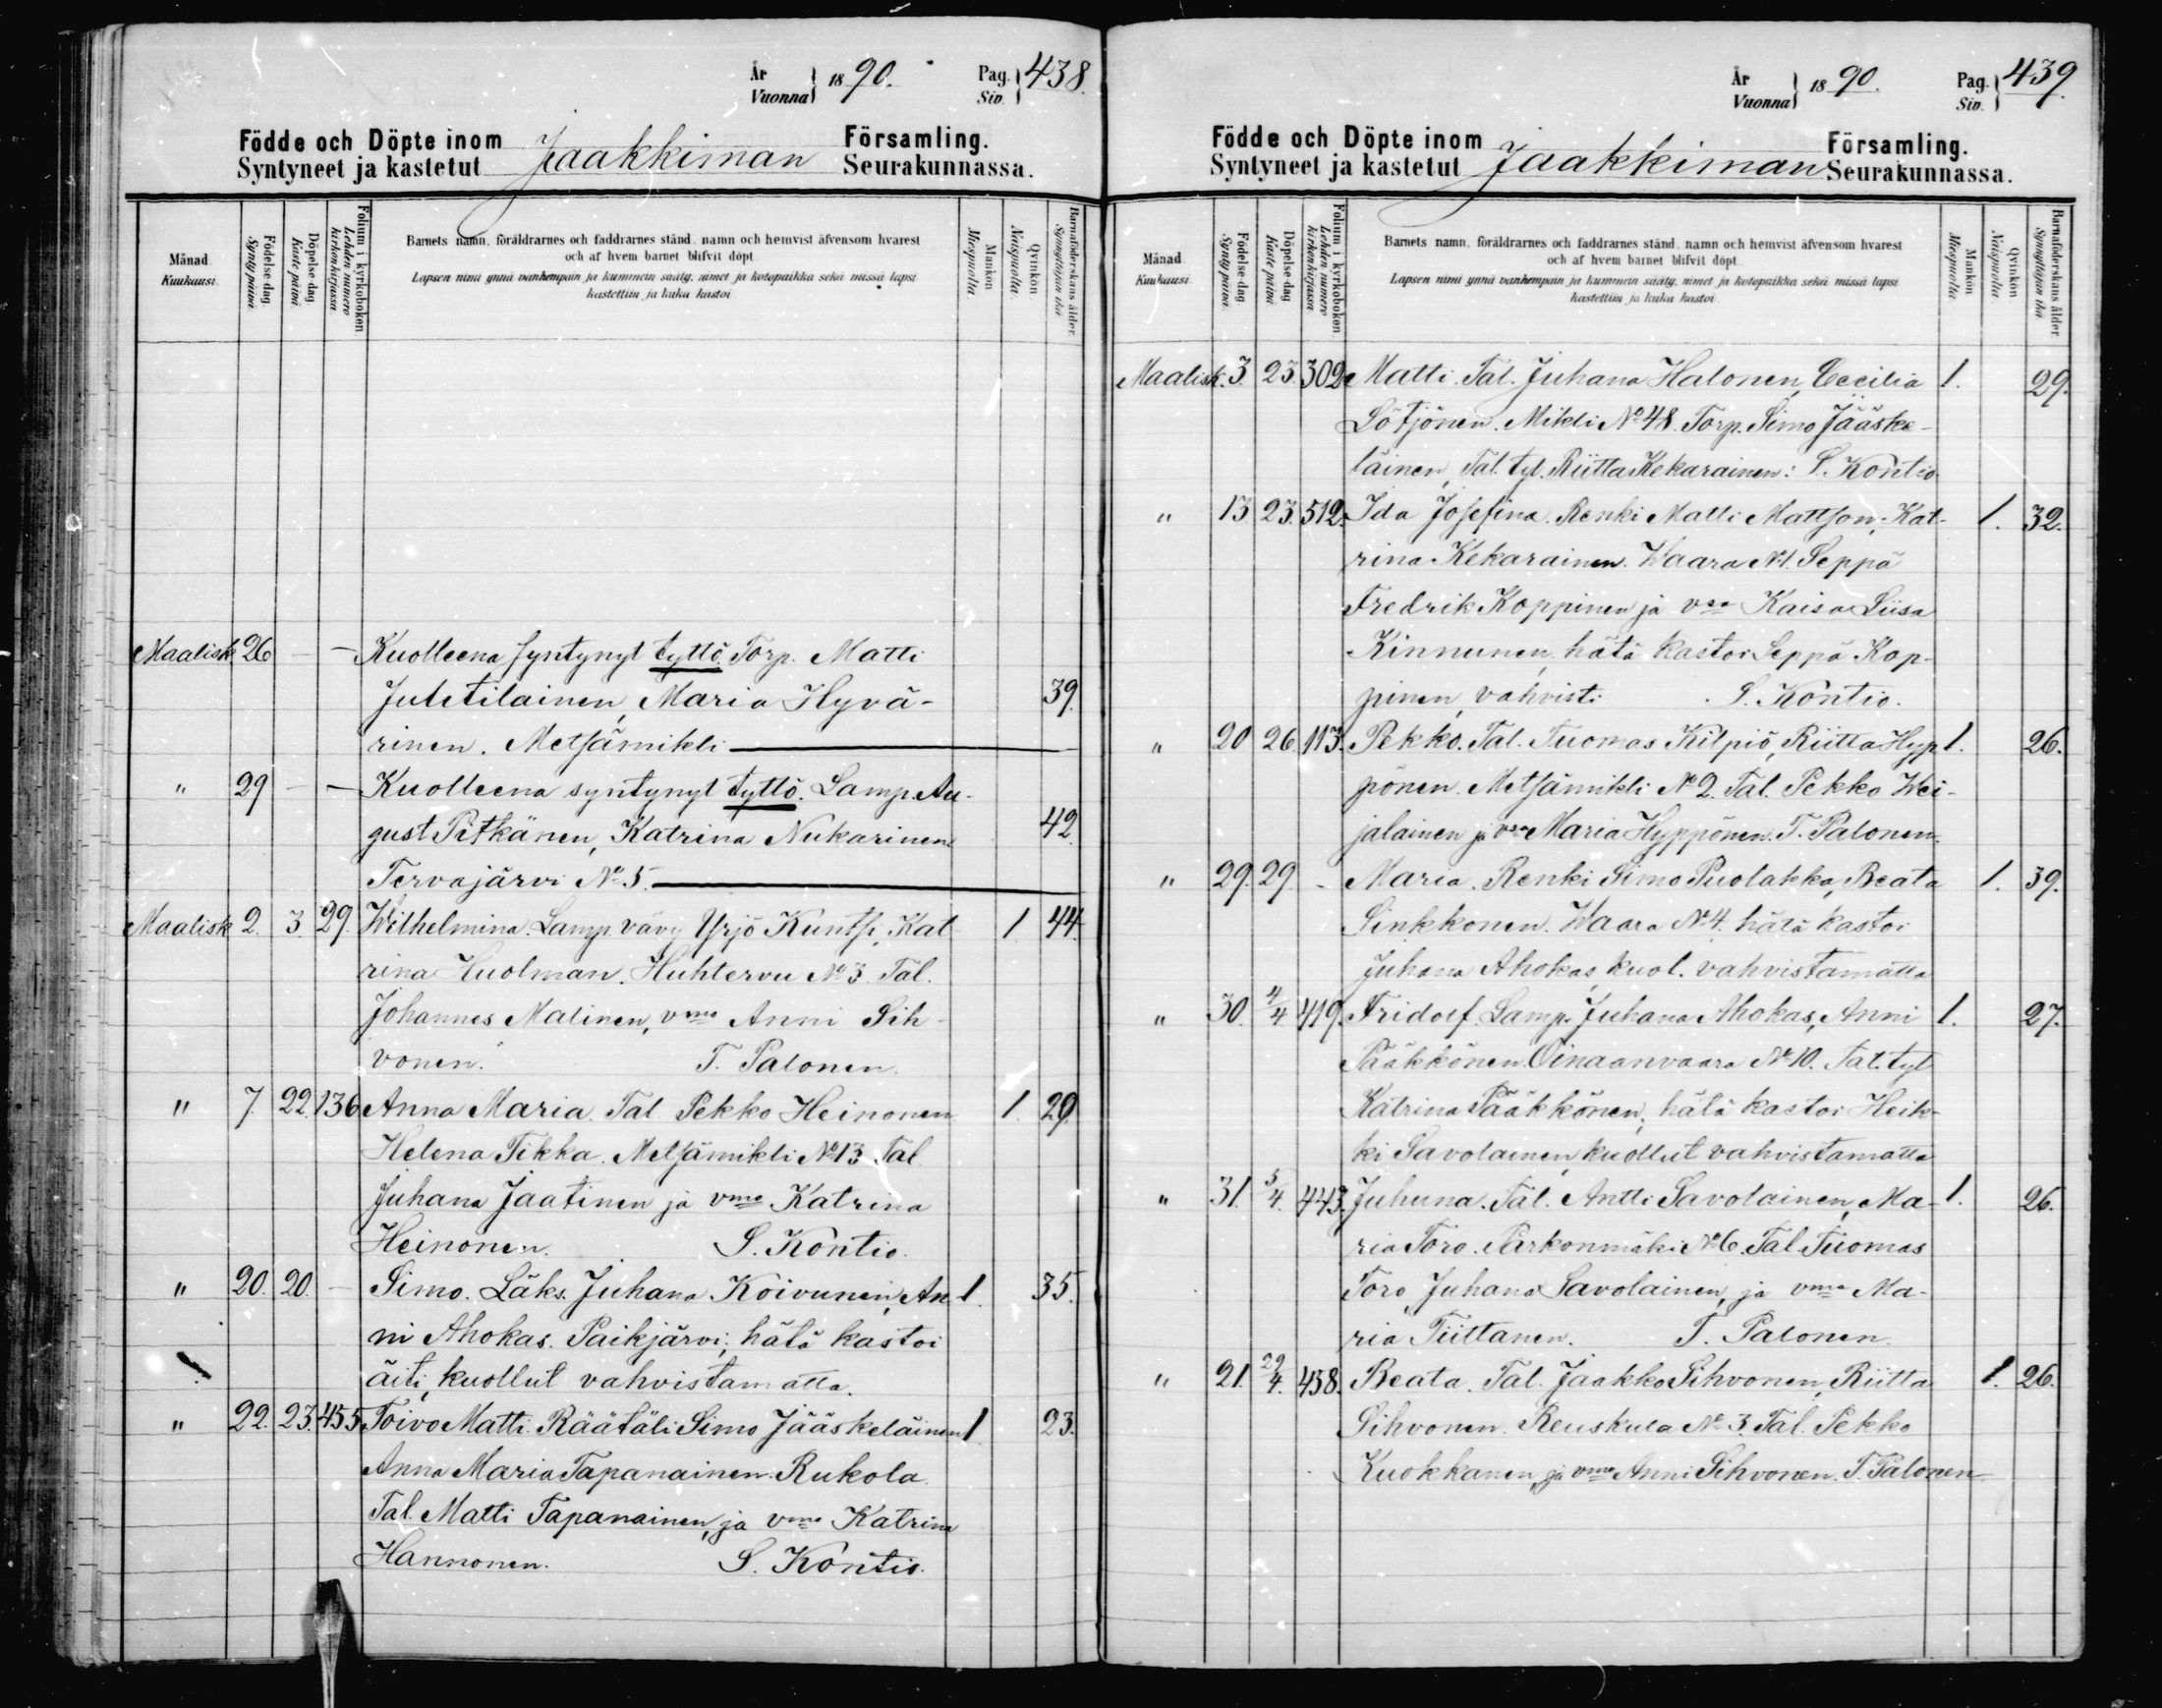 År
Vuonna } 1890. Pag.
Siv. } 438.
Födde och Döpte inom
Syntyneet ja kastetut Jaakkiman Församling.
Seurakunnassa.
Månad
Kuukausi.
Födelse dag.
Synty päivä
Döpelse dag.
Kaste päivä
Folium i kyrkoboken
Lehden numero kirkonkirjassa
Barnets namn, föräldrarnes och faddrarnes stånd, namn och hemvist äfvensom hvarest
och af hvem barnet blifvit döpt.
Lapsen nimi ynnä vanhempain ja kummein sääty, nimet ja kotopaikka sekä missä lapsi
kastettiin ja kuka kastoi
Mankön
Miespuolta
Qvinkön
Naispuolta
Barnaföderskans ålder.
Synnyttäjän ikä
Maalisk 26 — — Kuolleena syntynyt tyttö. Torp. Matti
Jutetilainen, Maria Hyvä- 39.
rinen. Metsämikli
" 29 — — Kuolleena syntynyt tyttö. Lamp. Au-
gust Pitkänen, Katrina Nukarinen 42.
Tervajärvi No 5.
Maalisk 2. 3. 29. Wilhelmina. Lamp. vävy Yrjö Kuntsi, Kat- 1 44.
rina Huolman. Huhtervu No 3. Tal.
Johannes Malinen, vmo Anni Sih-
vonen. T. Palonen.
" 7. 22. 136 Anna Maria. Tal. Pekko Heinonen 1. 29.
Helena Tikka. Metsämikli No 13. Tal.
Juhana Jaatinen ja vmo Katrina
Heinonen. S. Kontio.
" 20. 20. — Simo. Läks. Juhana Koivunen, An- 1. 35.
ni Ahokas. Paikjärvi; hätä kastoi
äiti, kuollut vahvistamatta.
" 22. 23. 455. Toivo Matti. Räätäli Simo Jääskeläinen 1 23.
Anna Maria Tapanainen. Rukola.
Tal. Matti Tapanainen, ja vmo Katrina
Hannonen. S. Kontio.
År
Vuonna } 1890. Pag.
Siv. } 439.
Födde och Döpte inom
Syntyneet ja kastetut Jaakkiman Församling.
Seurakunnassa.
Månad
Kuukausi
Födelse dag.
Synty päivä
Döpelse dag
Kaste päivä
Folium i kyrkoboken
Lehden numero kirkonkirjassa
Barnets namn, föräldrarnes och faddrarnes stånd, namn och hemvist äfvensom hvarest
och af hvem barnet blifvit döpt.
Lapsen nimi ynnä vanhempain ja kummein sääty, nimet ja kotopaikka sekä missä lapsi
kastettiin ja kuka kastoi
Mankön
Miespuolta
Qvinkön
Naispuolta
Barnaföderskans ålder.
Synnyttäjän ikä
Maalisk. 3. 23. 302. Matti. Tal. Juhana Halonen, Cecilia 1. 29.
Sötjönen. Mikli No 48. Torp. Simo Jääske-
läinen, Tal. tyt. Riitta Kekarainen: S. Kontio.
" 13. 23. 512. Ida Josefina. Renki Matti Mattson, Kat- 1. 32.
rina Kekarainen. Waara No 1. Seppä
Fredrik Koppinen ja vsa Kaisa Liisa
Kinnunen, hätä kastoi Seppä Kop-
pinen, vahvisti. S. Kontio.
" 20 26. 113. Pekko. Tal. Tuomas Kilpiö, Riitta Hyp- 1. 26.
pönen. Metsämikli No 2. Tal. Pekko Wei-
jalainen ja vsa Maria Hyppönen. T. Palonen.
" 29. 29. — Maria. Renki Simo Puolakka, Beata 1. 39.
Sinkkonen. Waara No 4. hätä kastoi
Juhana Ahokas, kuol. vahvistamatta
" 30. 4/4 419. Fridolf. Lamp. Juhana Ahokas, Anni 1. 27.
Pääkkönen. Oinaanvaara No 10. Tal. tyt
Katrina Pääkkönen, hätä kastoi Heik-
ki Savolainen, kuollut vahvistamatta
" 31. 5/4. 443. Juhana. Tal. Antti Savolainen, Ma- 1. 26.
ria Toro. Parkonmäki No 6. Tal. Tuomas
Toro, Juhana Savolainen, ja vmo Ma-
ria Tiittanen. T. Palonen.
" 21. 29/4. 458. Beata. Tal. Jaakko Sihvonen, Riitta 1. 26.
Sihvonen. Reuskula No 3. Tal. Pekko
Kuokkanen, ja vmo Anni Sihvonen. T. Palonen